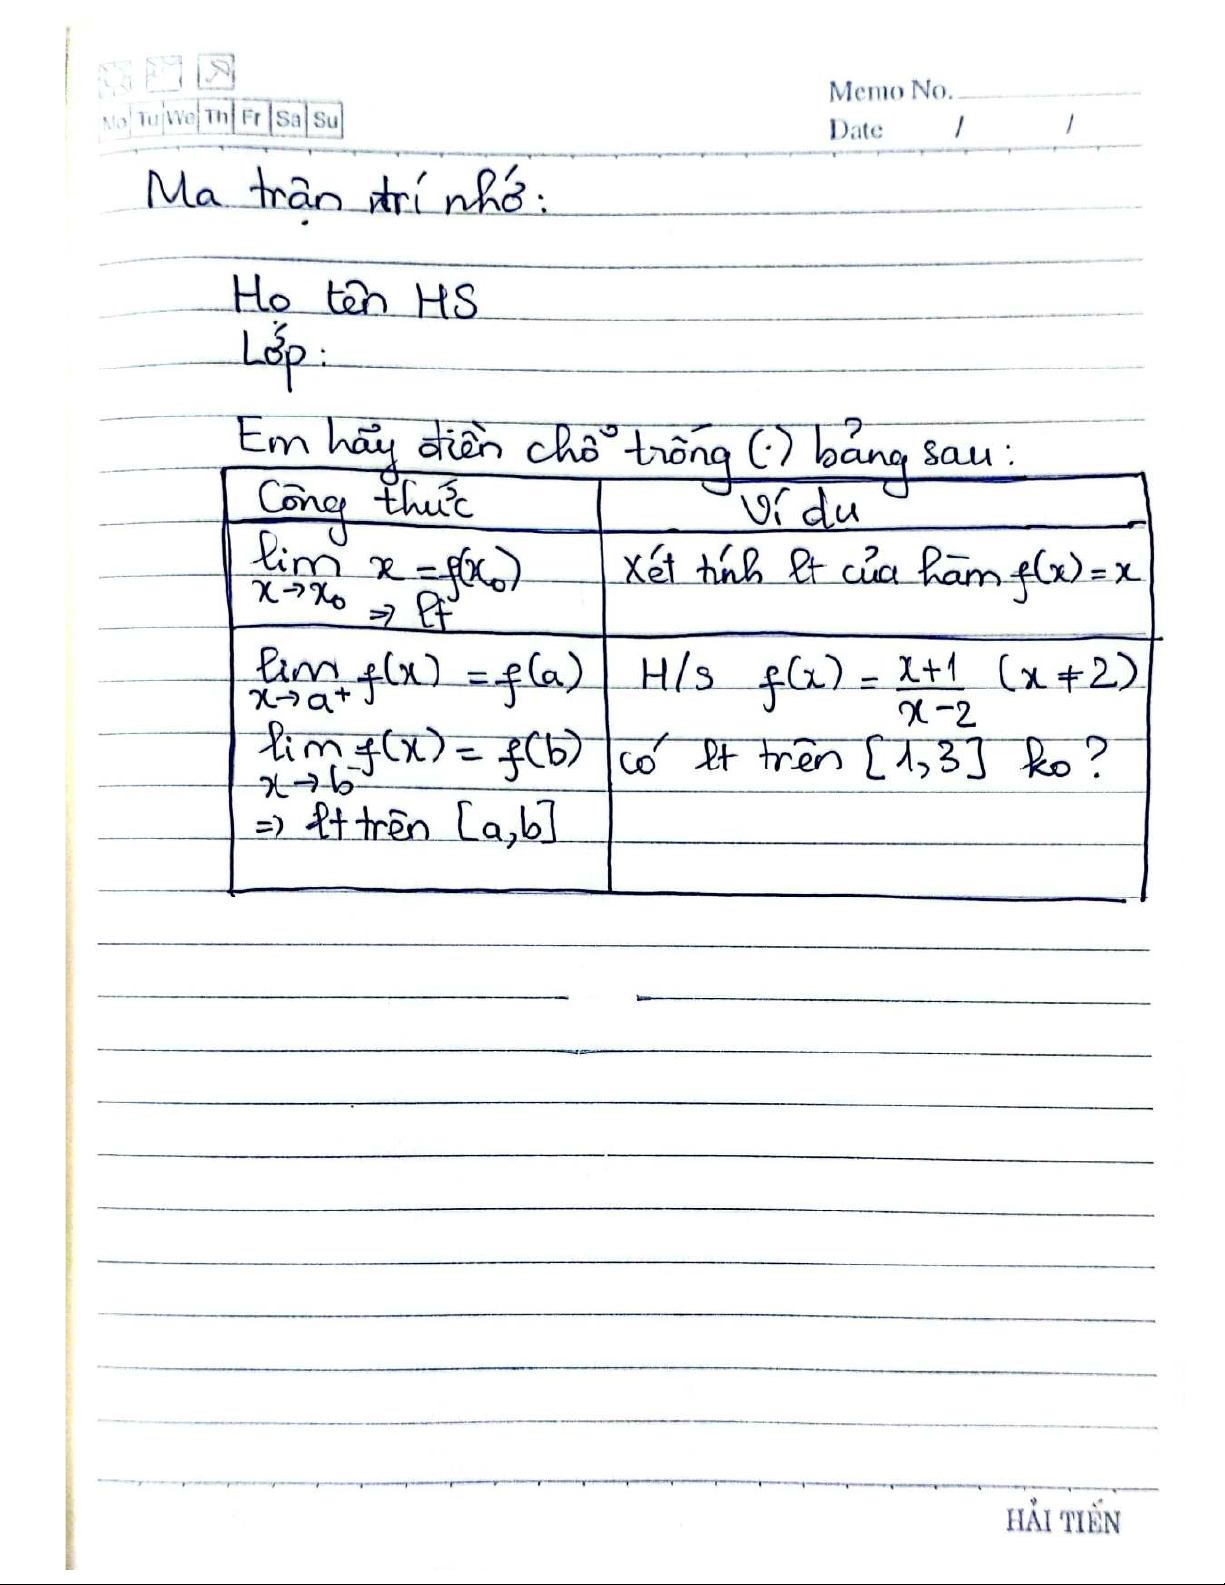 Mo Tu We Th Fr Sa Su
Memo No.
Date / /
Ma trận trí nhớ:
Họ tên HS
Lớp:
Em hãy điền chỗ trống (.) bảng sau:
Công thức Ví dụ
lim x = f(x₀) Xét tính lt của hàm f(x) = x
x→x₀ ⇒ lt
lim f(x) = f(a) H/s f(x) = (x+1)/(x-2) (x ≠ 2)
x→a⁺
lim f(x) = f(b) có lt trên [1,3] ko?
x→b⁻
⇒ lt trên [a,b]
HẢI TIẾN